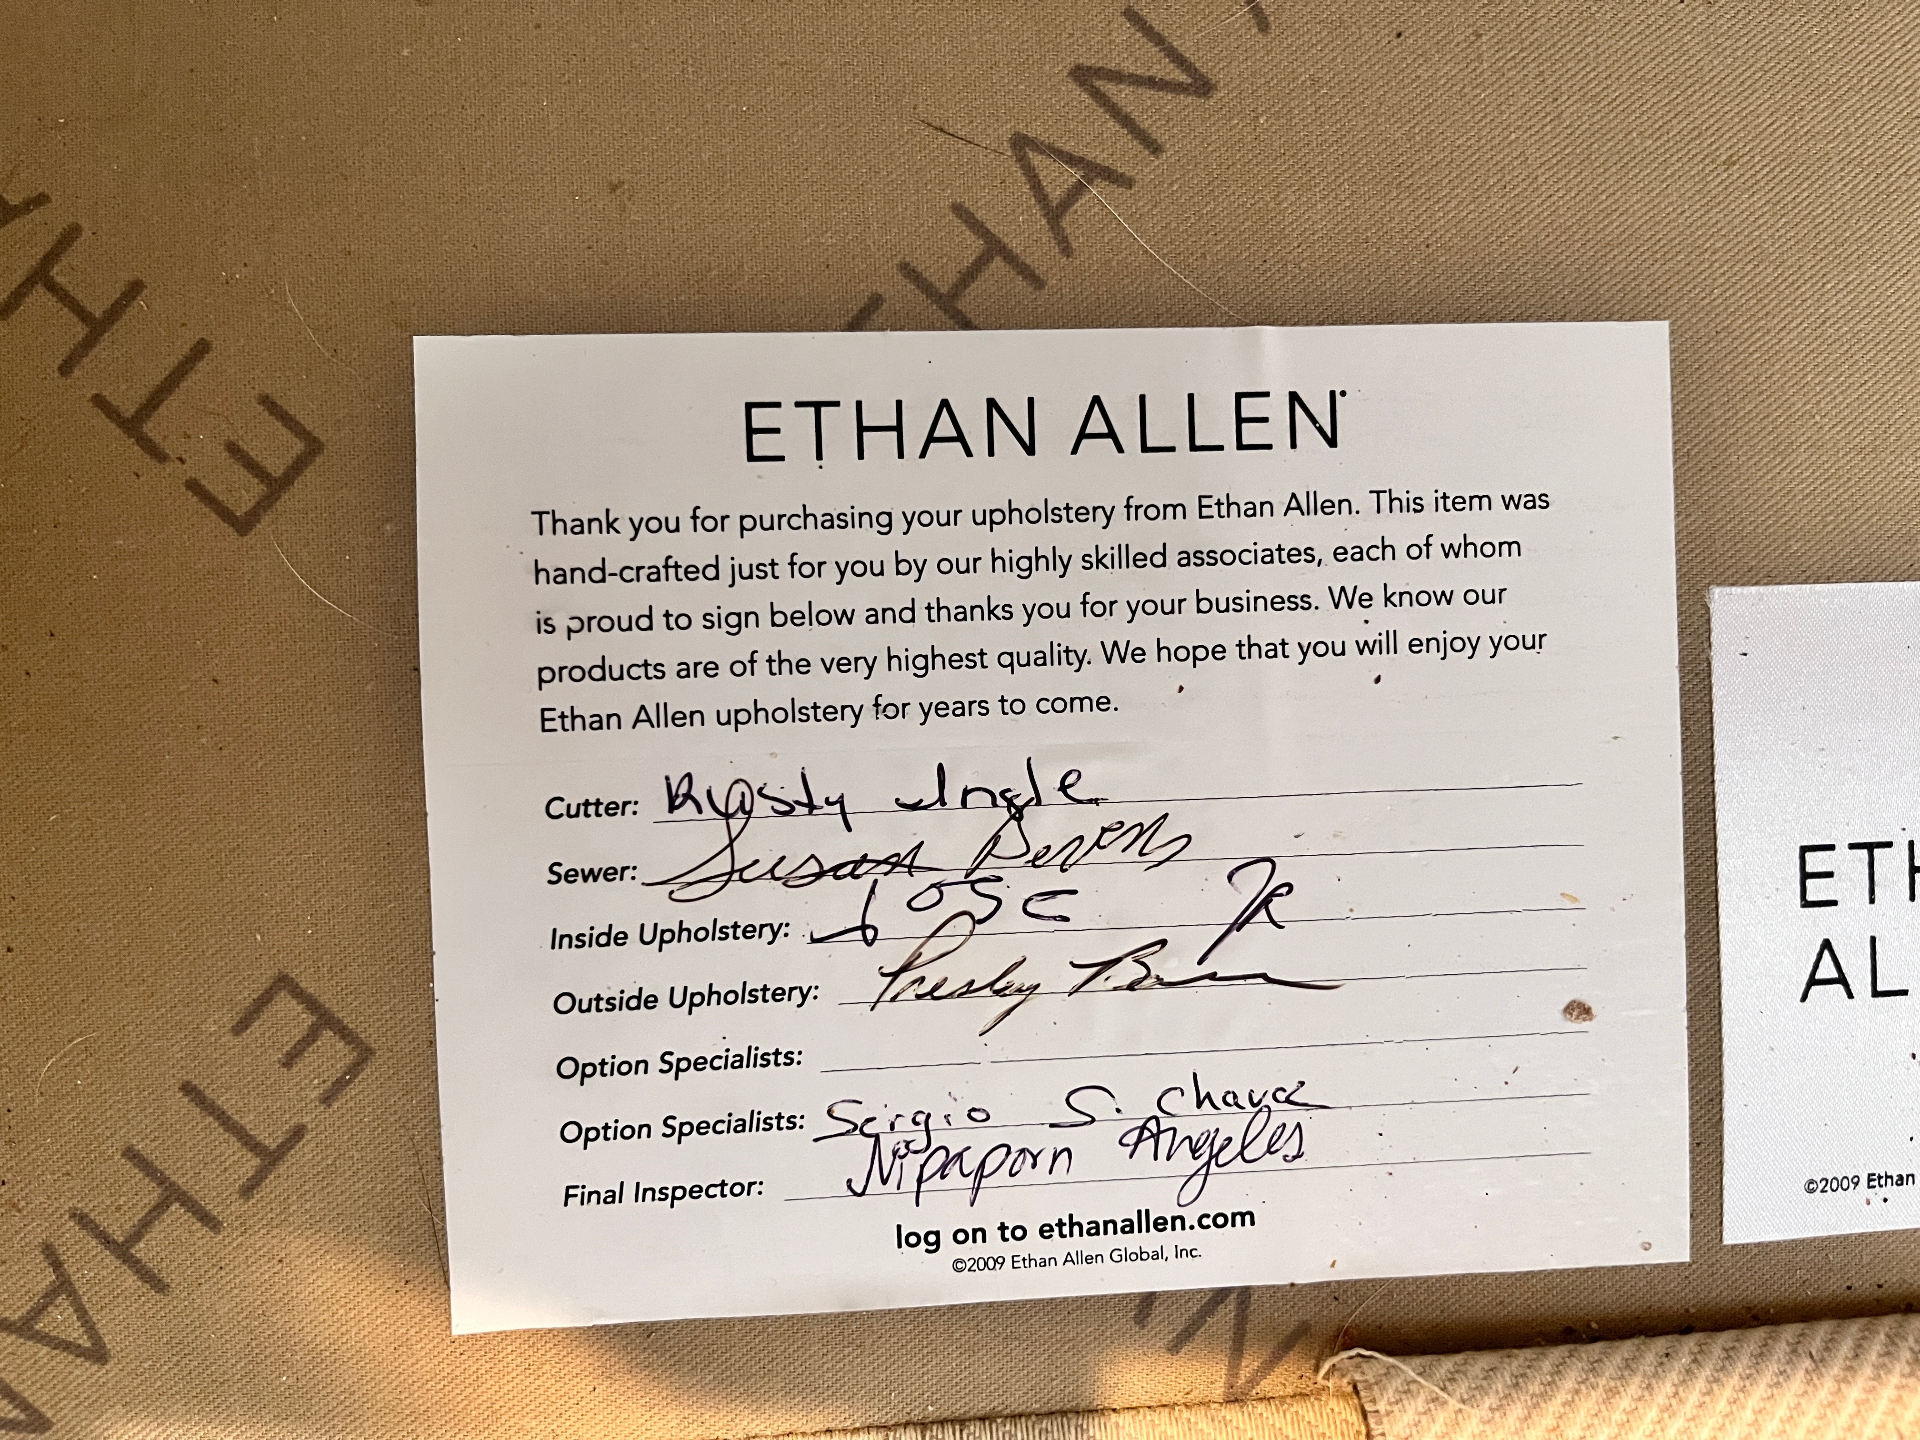 ETHAN
ETHAN
ETHAN ALLEN
Thank you for purchasing your upholstery from Ethan Allen. This item was
hand-crafted just for you by our highly skilled associates, each of whom
is proud to sign below and thanks you for your business. We know our
products are of the very highest quality. We hope that you will enjoy your
Ethan Allen upholstery for years to come.
Cutter: Rusty Ingle
Sewer: Susan
Inside Upholstery: Jose
Outside Upholstery: Presley
Option Specialists:
Option Specialists: Sergio S. Chavez
Final Inspector: Nipaporn Angeles
log on to ethanallen.com
©2009 Ethan Allen Global, Inc.
ETHA
ETH
AL
©2009 Ethan